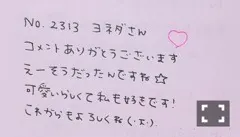 No. 2313 ヨネダさん
コメントありがとうございます
えーそうだったんですね☆
可愛いらしくて私も好きです!
これからもよろしくね(・ᴗ・)